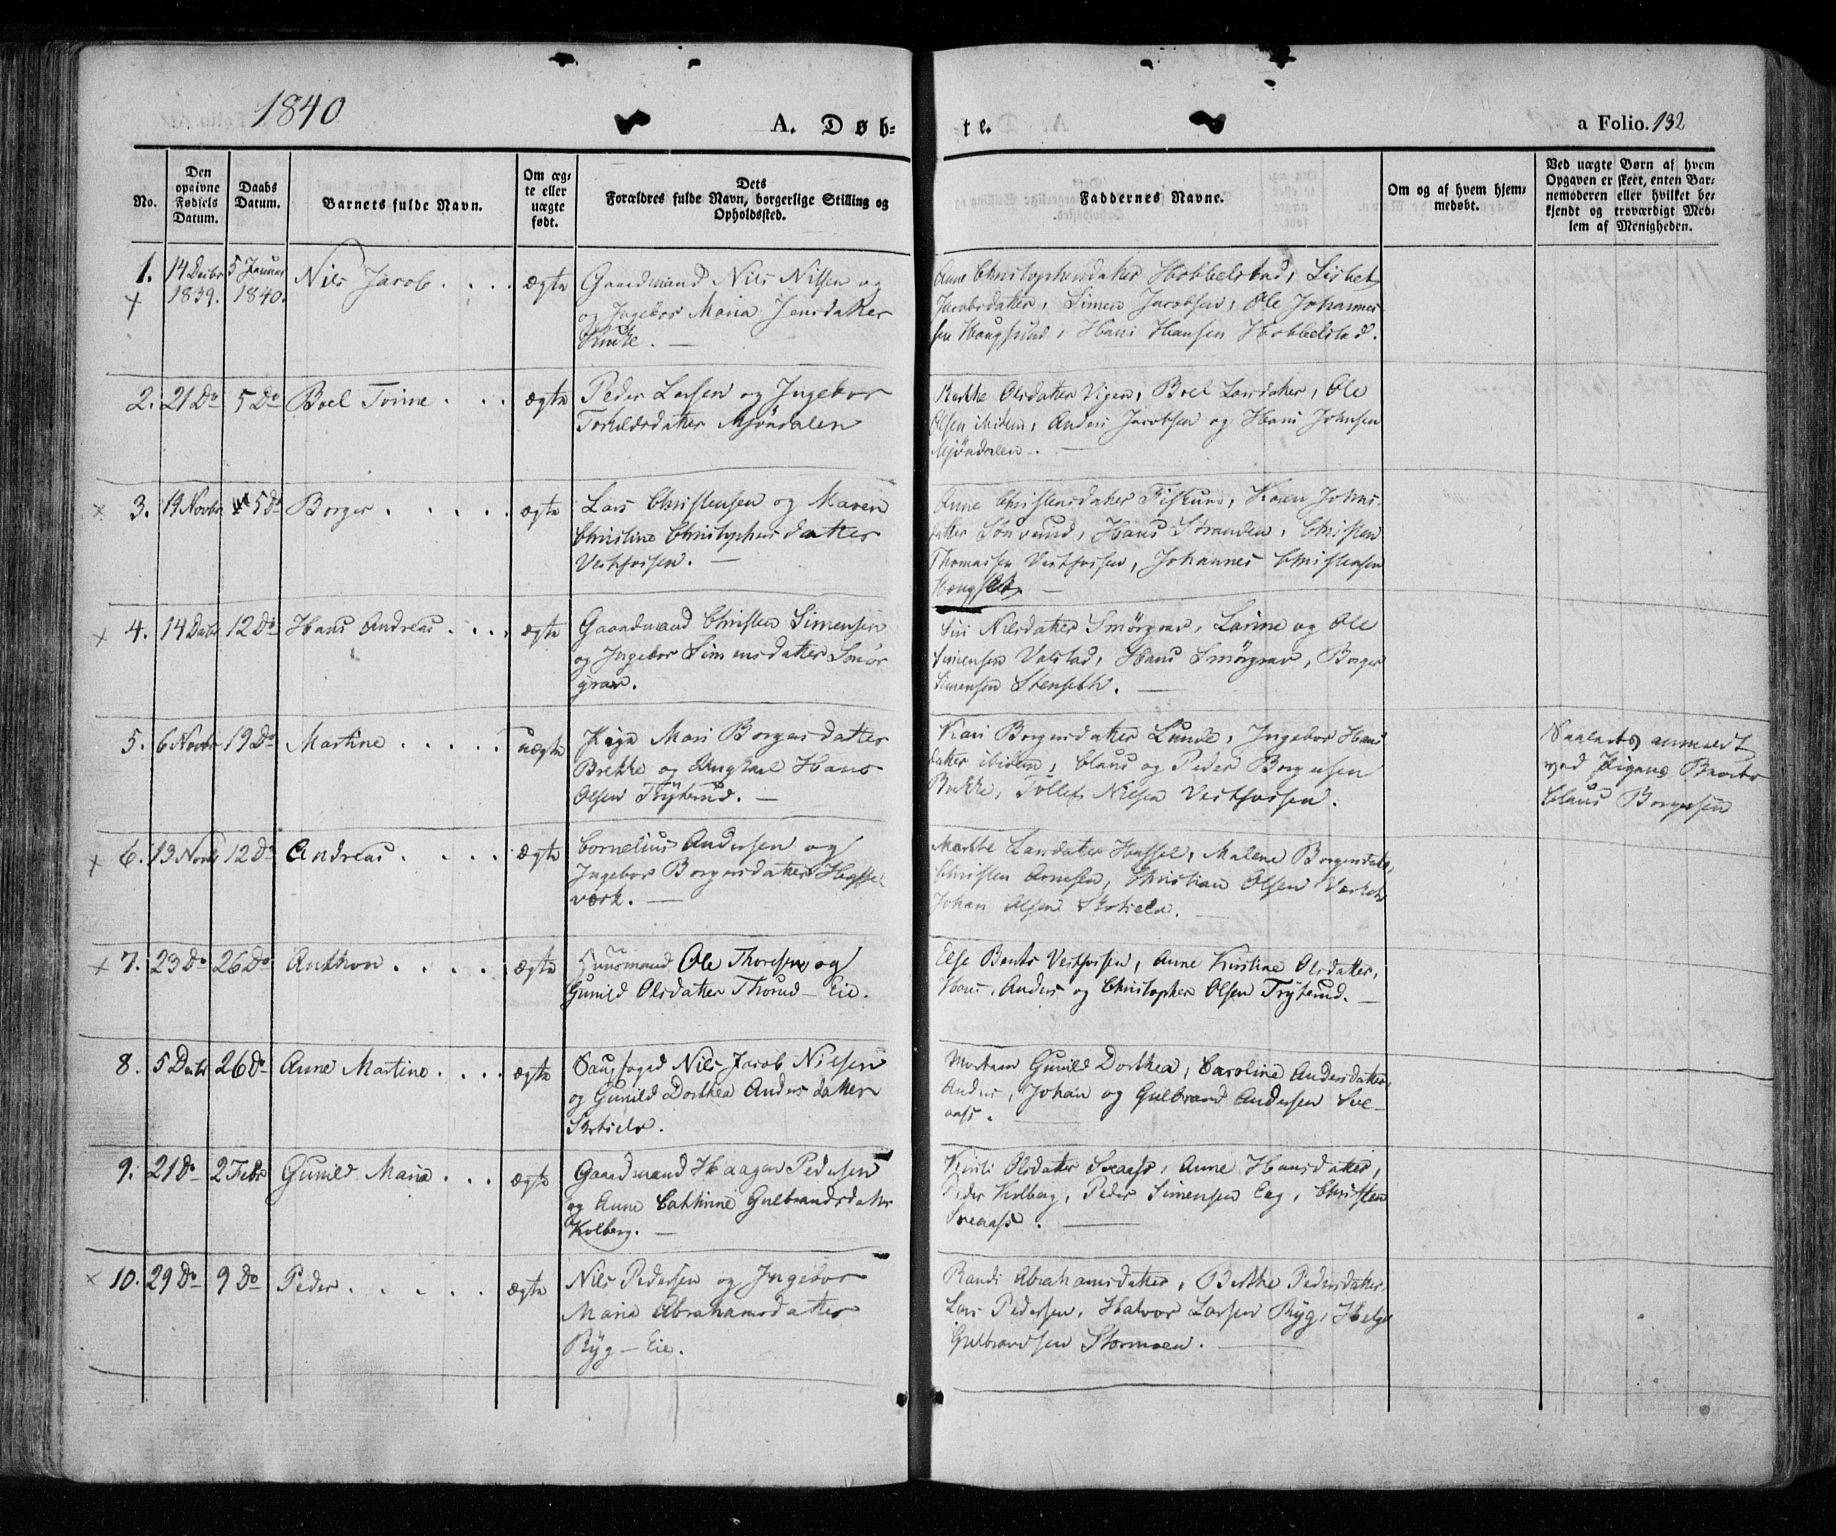 1840
A. Døb-
te.
a Folio. 132
No.
Den
opgivne
Fødsels
Datum.
Daabs
Datum.
Barnets fulde Navn.
Om æg-
te eller
uægte
født.
Dets
Forældres fulde Navn, borgerlige Stilling og
Opholdssted.
Faddernes Navne.
Om og af hvem hjem-
medøbt.
Ved uægte Børn af hvem
Opgaven er skeet, enten Bar-
nemoderen eller hvilket be-
kjendt og troværdigt Med-
lem af Menigheden.
1. 14 Decbr 5 Januar Nils Jacob ægte Gaardmand Nils Nilsen og
1839. 1840.
og Ingebor Maria Jensdatter
Anne Christophersdatter Hobbelstad, Lisbet
Jacobsdatter, Simen Jacobsen, Ole Johannes-
sen Hougsund, Hans Hansen Hobbelstad.
2. 21 Do 5 Do Boel Torine ægte Peder Larsen og Ingebor
Torkildsdatter Mjöndalen
Berthe Olsdatter Vigen, Boel Larsdatter, Ole
Olsen ibidem, Anders Jacobsen og Hans Johnsen
Mjöndalen.
3. 19 Novbr 5 Do Borger ægte Lars Christensen og Maren
Christine Christophersdatter
Vestfossen.
Anne Christensdatter Fiskum, Karen Johns-
datter, Hans Stranden, Christen
Thomassen Vestfossen, Johannes Christensen
4. 14 Decbr 12 Do Hans Andreas ægte Gaardmand Christen Simensen
og Ingebor Simensdatter Smör-
grav.
Siri Nilsdatter Smörgrav, Larine og Ole
Simensen Valstad, Hans Smörgrav, Borger
Simensen Stenseth.
5. 6 Novbr 19 Do Martine uægte Pige Mari Borgersdatter
Brekke og Ungkarl Hans
Olsen Tryterud.
Kari Borgersdatter Lunde, Ingebor Hans-
datter ibidem, Claus og Peder Borgersen
Brekke, Tollef Nilsen Vestfossen.
anmeldt
ved Pigens
Claus Borgersen
6. 13 Novbr 12 Do Andreas ægte Cornelius Andersen og
Ingebor Borgersdatter Hassel-
værk.
Marthe Larsdatter Hassel, Malene Borgersdatter,
Christen Arnesen, Christian Olsen Værket,
Johan Olsen Skotselv.
7. 23 Do 26 Do Anthon ægte Huusmand Ole Thoresen og
Gunild Olsdatter Thorud-Eie.
Else Bents Vestfossen, Anne Kirstine Olsdatter,
Hans, Anders og Christopher Olsen Tryterud.
8. 5 Decbr 26 Do Anne Martine ægte Saugfoged Nils Jacob Nilsen
og Gunild Dorthea Andersdatter
Skotselv.
Gunild Dorthea, Caroline Andersdatter,
Anders, Johan og Gulbrand Andersen Sve-
aass.
9. 21 Do 2 Febr Gunild Maria ægte Gaardmand Haagen Pedersen
og Anne Cathrine Gulbrandsdatter
Kolberg.
Kirsti Olsdatter Sveaass, Anne Hansdatter,
Peder Kolberg, Peder Simensen Eeg, Christen
Sveaass.
10. 29 Do 9 Do Peder ægte Nils Pedersen og Ingebor
Maria Abrahamsdatter
Ryg-Eie.
Randi Abrahamsdatter, Berthe Pedersdatter,
Lars Pedersen, Halvor Larsen Ryg, Helge
Gulbrandsen Stormoen.